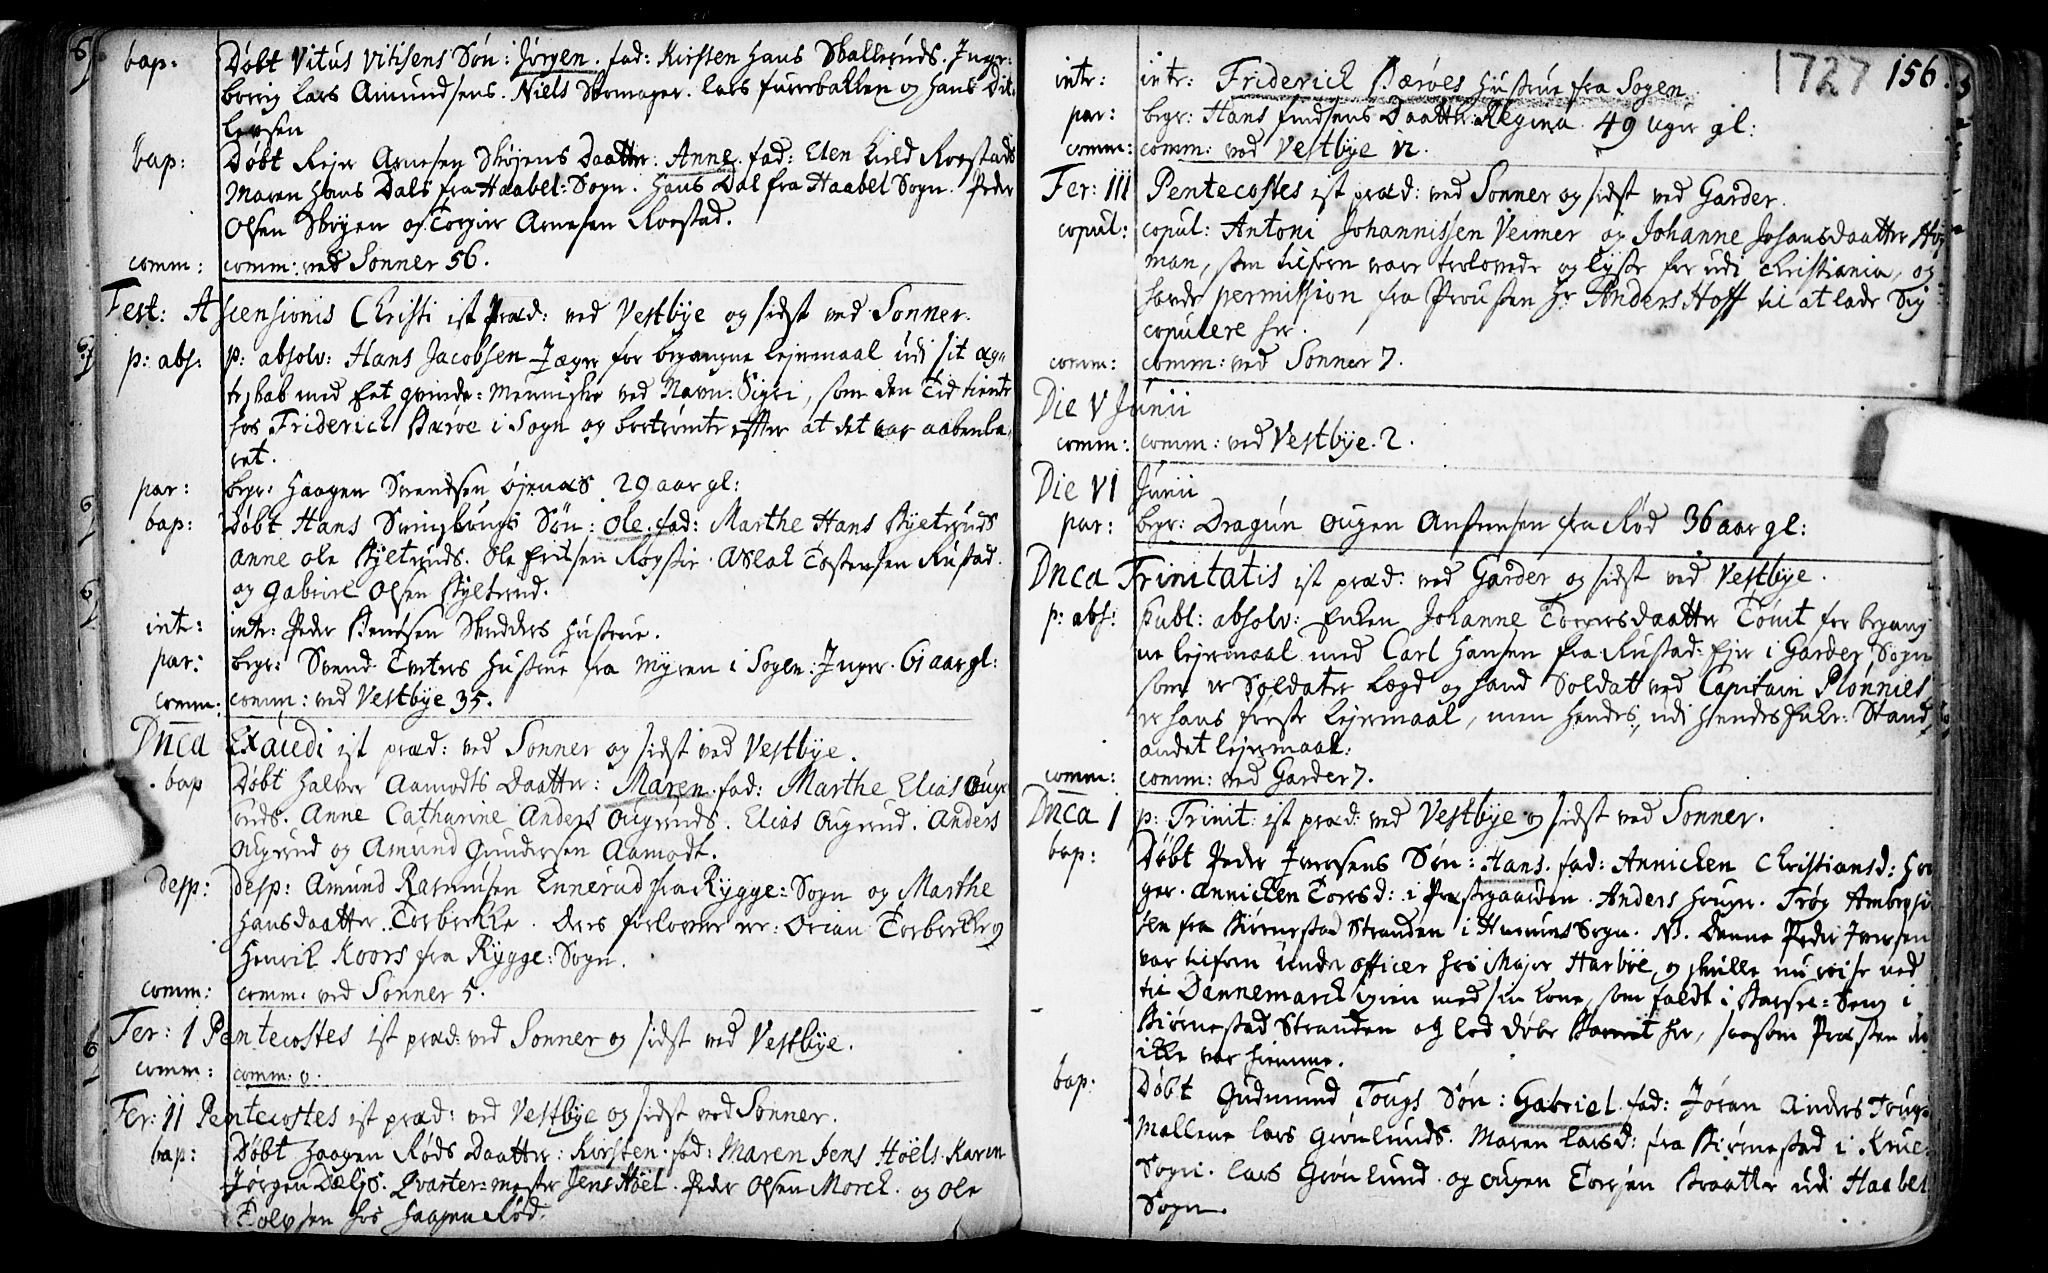 bap: Døbt Vitus Vitisens Søn: Jørgen. fad: Kirsten Hans Skalleruds. Inge:
borrig Lars Amundsens. Niels Skomager. Lars furrebakken og Hans Dit:
levsen
bap: Døbt Rejer Arnesen Skøjens Daatter: Anne. fad: Elen Kield Roestads
Maren Hans Dals fra Haabel: Sogn. Hans Dal fra Haabel Sogn. Peder
Olsen Skøyen og Torgier Arnesen Roestad.
comm: comm: ved Sonner 56.
Fest: Ascensionis Christi ist Præd: ved Vestbÿe og sidst ved Sonner.
p: abs: p: absolv: Hans Jacobsen Jæger for begangne lejermaal udi sit æg:
teskab med Eet qvinde: Menniske ved Navn: Sigri, som den Tid tiente
hos Friderich Bærøe i Sogn og bortrømte effter at det var aabenba:
ret.
par: begr: Haagen Svendsen Øjenæs 29 aar gl:
bap: Døbt Hans Svingbougs Søn: Ole. fad: Marthe Hans Kjetruds
Anne Ole Kjeltruds. Ole Eriksen Aslak Tostensen Rustad.
og Gabriel Olsen Kjeltrud.
intr: intr: Peder Skredders Hustrue.
par: begr: Svend Hustrue fra Myren i Sogen: Inger. 61 aar gl:
comm: comm: ved Vestbÿe 35.
Dnca Exaudi ist præd: ved Sonner og sidst ved Vestbÿe.
bap Døbt Halvor Aamodts Daatter: Maren. fad: Marthe Elias Ouge
ruds. Anne Catharine Anders Ougeruds. Elias Ougerud. Anders
Ougerud og Amund Gundersen Aamodt.
desp: desp: Amund Rasmusen Ennerud fra Rÿgge: Sogn og Marthe
Hansdaatter Torbekke. Deres forlover er: Orian Torbekke og
Henrik Koors fra Rÿgge: Sogn.
comm: comm: ved Sonner 5.
Fer: I Pentecostes ist præd: ved Sonner og sidst ved Vestbÿe.
comm: comm: 0.
Fer: II Pentecostes ist præd: ved Vestbÿe og sidst ved Sonner.
bap: Døbt Haagen Røds Daatter: Kirsten. fad: Maren Jens Hoëls. Karen
Jørgen Dæljs. Qvarter: mester Jens Hoël. Peder Olsen Morck. og Ole
Tolvsen hos Haagen Rød.
1727 156.
intr: intr: Friderich Bærøes Hustrue fra Sogen
par: begr: Hans findsens Daatter: Regina. 49 Uger gl:
comm: comm: ved Vestbÿe 12.
Fer: III Pentecostes ist præd: ved Sonner og sidst ved Garder.
copul: copul: Antoni Johannissen Veimer og Johanne Johansdaatter
man, som tilforn vare trolovede og lÿste for udi Christiania, og
havde permission fra Provsten Hr Anders Hoff til at lade sig
copulere her.
comm: comm: ved Sonner 7.
Die V Junii
comm: comm: ved Vestbÿe. 2.
Die VI Junii
par: begr: Dragun Ougen Anstensen fra Rød 36 aar gl:
Dnca Trinitatis ist præd: ved Garder og sidst ved Vestbÿe.
p: abs: publ: absolv: Enken Johanne Torersdaatter Tomt for begang
ne lejermaal med Carl Hansen fra Rustad: Ejer i Garder Sogn
som er Soldater lægd og hand Soldat ved Capitain Plønnies
er hans første lejermaal, men hendes, udi hendes Enke: Stand,
andet lejermaal:
comm: comm: ved Garder 7.
Dnca I p: Trinit: ist præd: ved Vestbÿe og sidst ved Sonner.
bap: Døbt Peder Iversens Søn: Hans. fad: Annichen Christiansd:
ger. Annichen Toresd: i Præstegaarden. Anders Trøg Ambrosi
sen fra Kirnestad Stranden i Sogn. NB. Denne Peder Iversen
var tilforn under officer hos Major Harboe, og skulle nu reise ned
til Dannemarck igien med sin kone, som faldt i Barsel: Seng i
Kirnestad Stranden og lod døbe Barnet her, saasom Præsten
ikke var hiemme.
bap: Døbt Gudmund Tougs Søn: Gabriel. fad: Jøran Anders Toug:
Mallene Lars Grønlunds. Maren Larsd: fra Kirnestad i
Sogn. Lars Grønlund. og Ougen Toresen Braatte udi Haabel
Sogn.